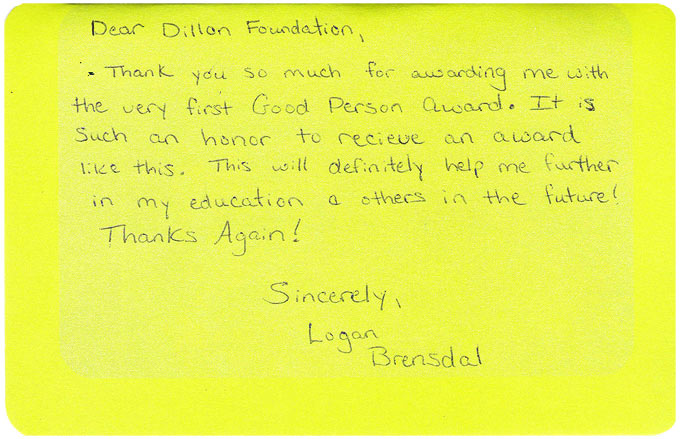 Dear Dillon Foundation,
. Thank you so much for awarding me with
the very first Good Person Award. It is
Such an honor to recieve an award
like this. This will definitely help me further
in my education & others in the future!
Thanks Again!
Sincerely,
Logan
Brensdal